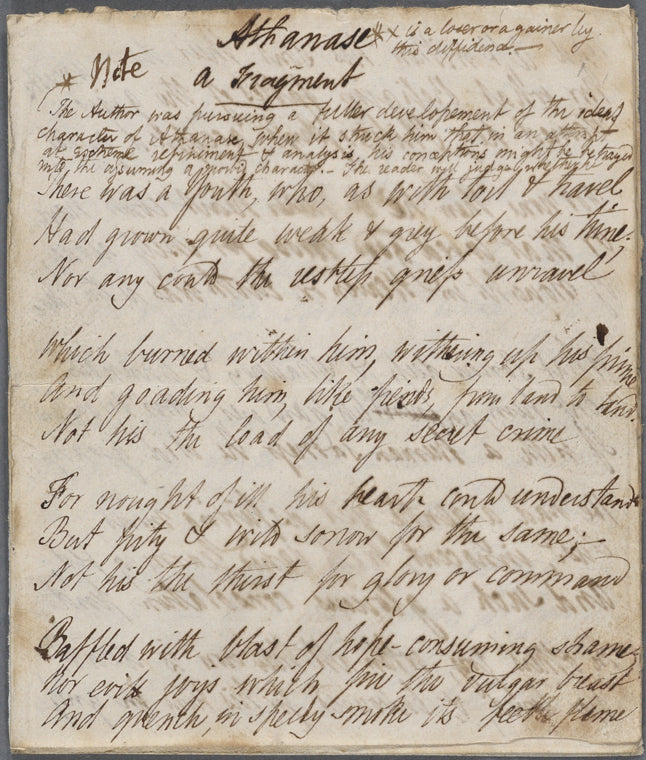 Athanase * x is a loser or a gainer by
this diffidence.—
* Note a Fragment
The Author was pursuing a fuller developement of the ideal
character of Athanase, when it struck him that in an attempt
at extreme refinement & analysis, his conceptions might be betrayed
into the assuming a morbid character.— The reader will judge whether he
There was a youth, who, as with toil & travel
Had grown quite weak & grey before his time.
Nor any could the restless griefs unravel
Which burned within him, withering up his prime
And goading him, like fiends, from land to land.
Not his the load of any secret crime
For nought of ill his heart could understand
But pity & wild sorrow for the same;—
Not his the thirst for glory or command
Baffled with blast of hope-consuming shame;
Nor evil joys which fire the vulgar breast
And quench in speedy smoke its feeble flame